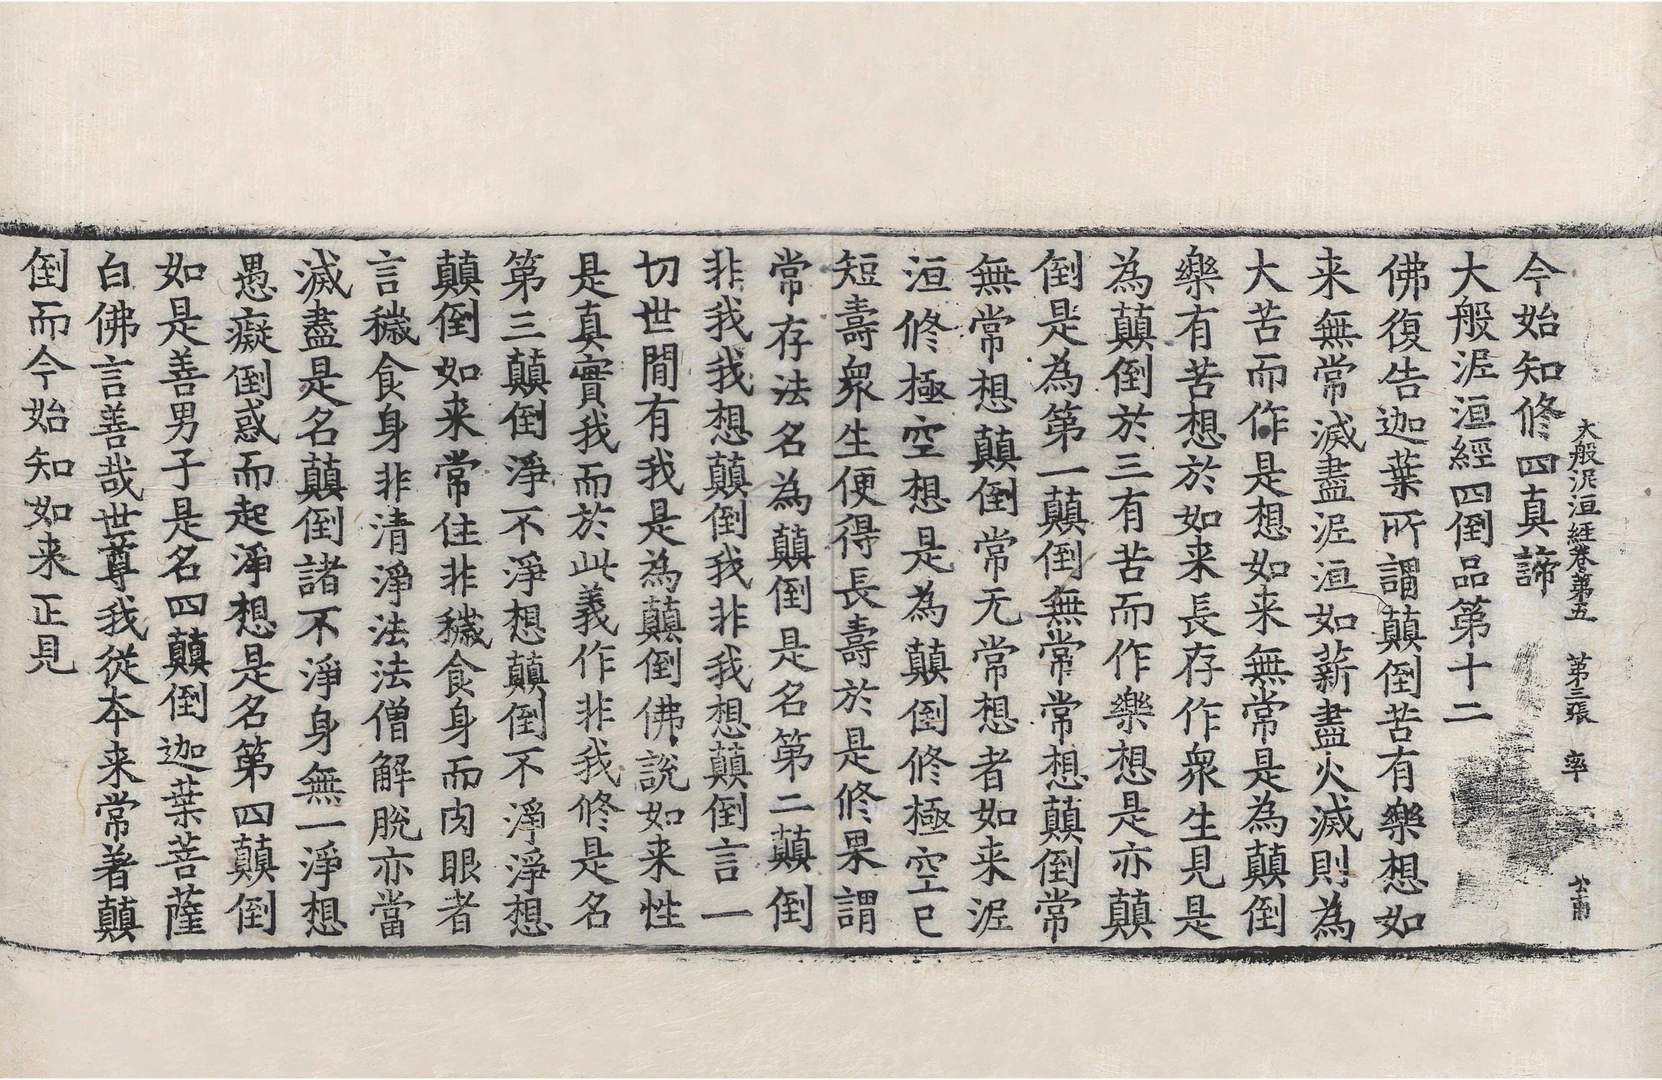 大般泥洹經卷第五　第三張　率
今始知修四真諦
大般泥洹經四倒品第十二
佛復告迦葉所謂顛倒苦有樂想如
来無常滅盡泥洹如薪盡火滅則為
大苦而作是想如来無常是為顛倒
樂有苦想於如来長存作衆生見是
為顛倒於三有苦而作樂想是亦顛
倒是為第一顛倒無常常想顛倒常
無常想顛倒常无常想者如来泥
洹修極空想是為顛倒修極空已
短壽衆生便得長壽於是修果謂
常存法名為顛倒是名第二顛倒
非我我想顛倒我非我想顛倒言一
切世間有我是為顛倒佛說如来性
是真實我而於此義作非我修是名
第三顛倒淨不淨想顛倒不淨淨想
顛倒如来常住非穢食身而肉眼者
言穢食身非清淨法法僧解脫亦當
滅盡是名顛倒諸不淨身無一淨想
愚癡倒惑而起淨想是名第四顛倒
如是善男子是名四顛倒迦葉菩薩
白佛言善哉世尊我從本来常著顛
倒而今始知如来正見